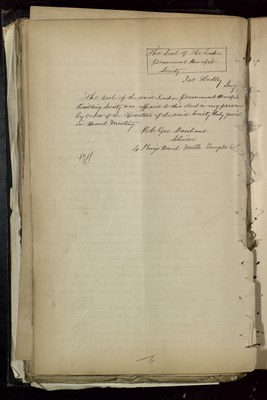 The Seal of The London
Permanent Benefit
Society
Jas Hadley
Secy
The seal of the said London Permanent Benefit
Building Society was affixed to this deed in my presence
by order of the Directors of the said Society duly given
in Board Meeting
Robt Geo Marchant
Solicitor
4 Kings Bench Walk Temple EC